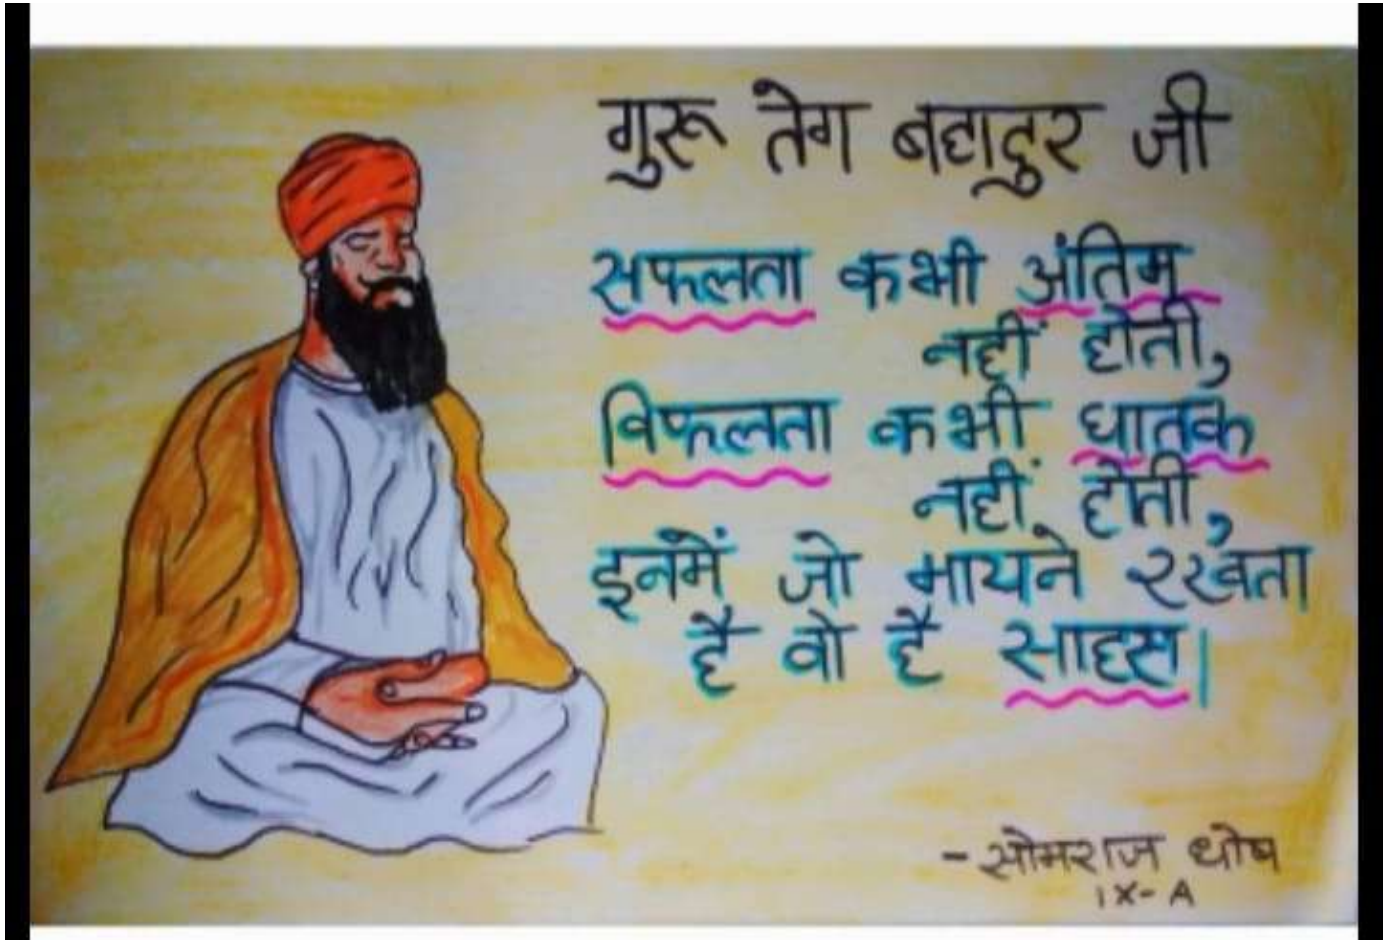 गुरू तेग बहादुर जी
सफलता कभी अंतिम
नहीं होती,
विफलता कभी घातक
नहीं होती,
इनमें जो मायने रखता
है वो है साहस।
- सोमराज घोष
IX- A